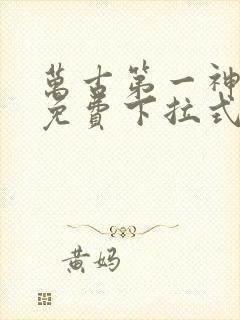 萬古第一神
免費下拉式
黄妈